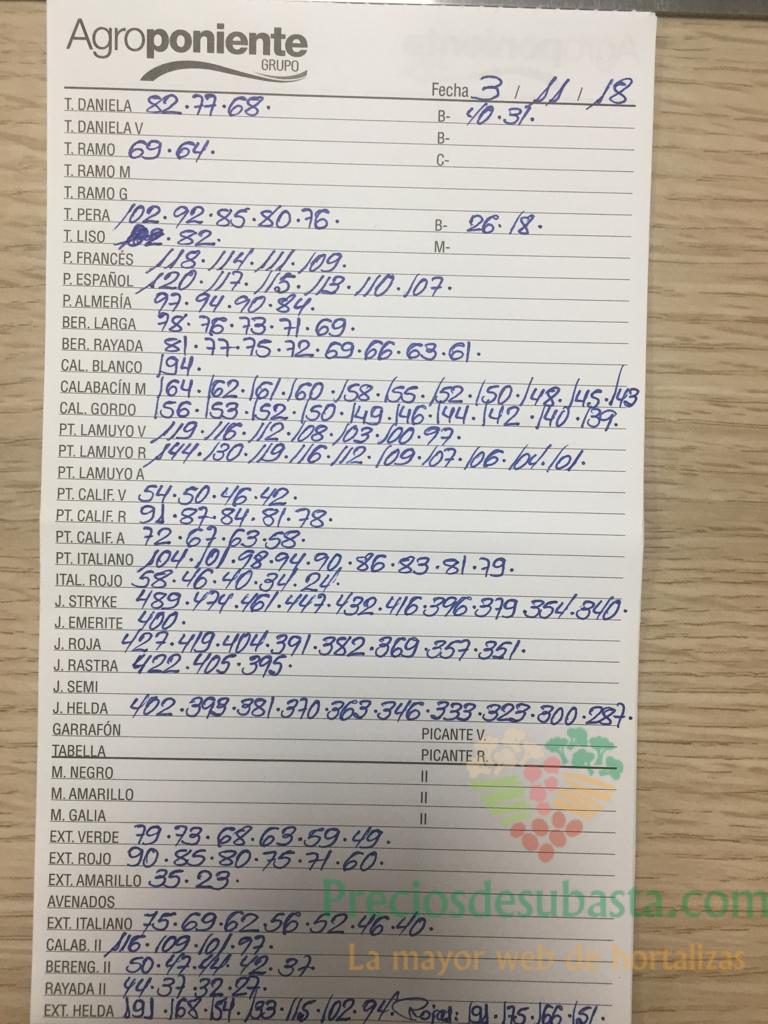 Agroponiente
GRUPO
Fecha 3 / 11 / 18
T. DANIELA 82.77.68. B- 40.31.
T. DANIELA V B-
T. RAMO 69.64. C-
T. RAMO M
T. RAMO G
T. PERA 102.92.85.80.76. B- 26.18.
T. LISO 82. M-
P. FRANCÉS 118.114.111.109.
P. ESPAÑOL 120.117.115.113.110.107.
P. ALMERÍA 97.94.90.84.
BER. LARGA 78.76.73.71.69.
BER. RAYADA 81.77.75.72.69.66.63.61.
CAL. BLANCO 194.
CALABACÍN M 164.162.161.160.158.155.152.150.148.145.143
CAL. GORDO 156.153.152.150.149.146.144.142.140.139.
PT. LAMUYO V 119.116.112.108.103.100.97.
PT. LAMUYO R 144.130.119.116.112.109.107.106.104.101.
PT. LAMUYO A
PT. CALIF. V 54.50.46.42.
PT. CALIF. R 91.87.84.81.78.
PT. CALIF. A 72.67.63.58.
PT. ITALIANO 104.101.98.94.90.86.83.81.79.
ITAL. ROJO 58.46.40.34.24.
J. STRYKE 489.474.461.447.432.416.396.379.354.340.
J. EMERITE 400.
J. ROJA 427.419.404.391.382.369.357.351.
J. RASTRA 422.405.395.
J. SEMI
J. HELDA 402.393.381.370.363.346.333.323.300.287.
GARRAFÓN PICANTE V.
TABELLA PICANTE R.
M. NEGRO II
M. AMARILLO II
M. GALIA II
EXT. VERDE 79.73.68.63.59.49.
EXT. ROJO 90.85.80.75.71.60.
EXT. AMARILLO 35.23.
Preciosdesubasta.com
AVENADOS
EXT. ITALIANO 75.69.62.56.52.46.40.
CALAB. II 116.109.101.97.
La mayor web de hortalizas
BERENG. II 50.47.44.42.37.
RAYADA II 44.37.32.27.
EXT. HELDA 191.168.154.133.115.102.94. Rojas: 191.175.166.151.